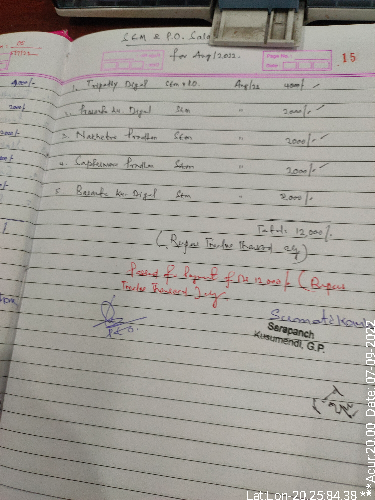 SEM & P.O. Sala
for Aug/2022.
Page No.:
15
4000/-
2000/-
1. Tripathy Digal Sem & P.O. Aug/22 4000/-
2. Prasanta Ku. Digal Sem " 2000/-
3. Nakhetra Pradhan Sem " 2000/-
4. Sapheswar Pradhan Sem " 2000/-
5. Basanta Ku. Digal Sem " 2000/-
Total: 12,000/-
(Rupees Twelve thousand only)
Passed for Payment of Rs 12,000/- (Rupees
Twelve thousand only
P.E.O.
Sarapanch
Kusumendi, G.P.
Lat Lon-20.25:84.38 ***Acur:20.00 Date: 07-09-2022